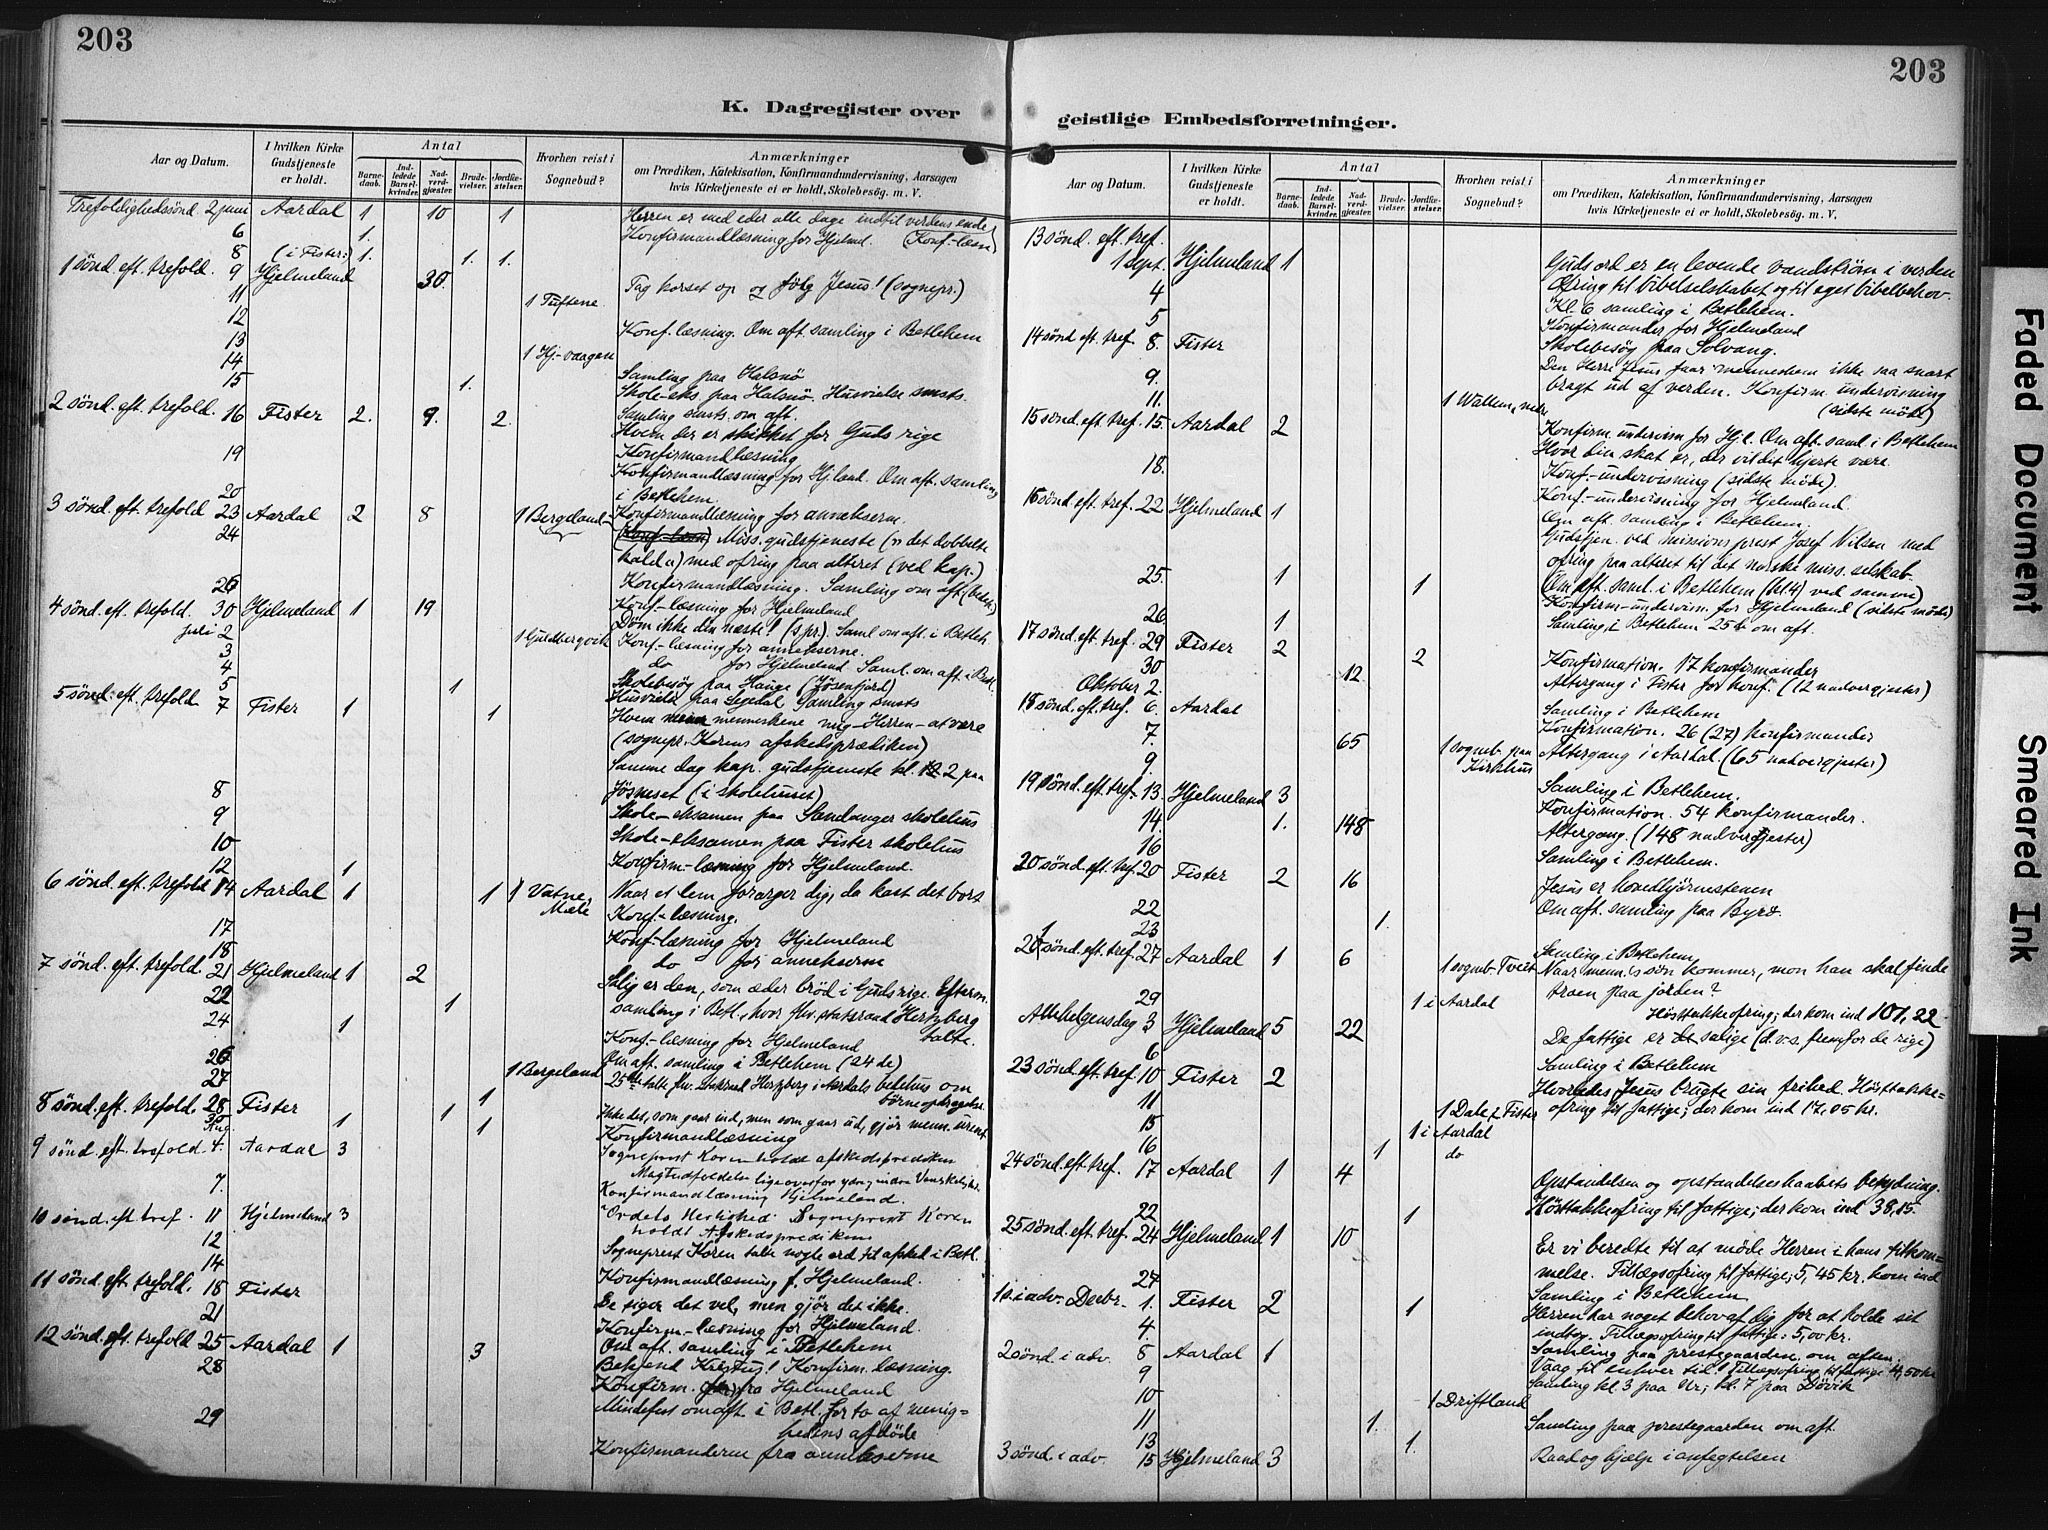 203
203
K. Dagregister over
geistlige Embedsforretninger.
Aar og Datum.
I hvilken Kirke Gudstjeneste er holdt.
Antal
Barnedaab.
Indledede Barselkvinder.
Nadverdgjæster.
Brudevielser.
Jordfæstelser.
Hvorhen reist i Sognebud?
Anmærkninger
om Prædiken, Katekisation, Konfirmandundervisning, Aarsagen
hvis Kirketjeneste ei er holdt, Skolebesøg. m. V.
Trefoldighedssønd. 2 juni Aardal 1. 10 1 Herren er med eder alle dage indtil verdens ende
6 1. Konfirmandlæsning for Hjelmd. (Konf.-læsn)
8 (i Fister:) 1. 1. 1.
1 sønd. eft. trefold. 9 Hjelmeland 30. Tag korset op og følg Jesus! (sognepr.)
11 1 Tuftene
12 Konf-læsning. Om aft. samling i Betlehem
13
14 1 Hj.-vaagen Samling paa Halsnø
15 1. Skole-eks. paa Halsnø. Husvielse smsts.
Samling smsts. om aft.
2 sønd. eft. trefold. 16 Fister 2. 9. 2. Hvem der er skikket for Guds rige
19 Konfirmandlæsning
20 Konfirmandlæsning for Hj.land. Om aft. samling
i Betlehem.
3 sønd. eft. trefold 23 Aardal 2 8 1 Bergeland Konfirmandlæsning for annekserne.
24 Miss. gudstjeneste (n det dobbelte
kald a) med ofring paa alteret (ved kap.)
26 Konfirmandlæsning. Samling om aft.
Konf-læsning for Hjelmeland
4 sønd. eft. trefold. 30 Hjelmeland 1 19 Døm ikke din næste! (spr.). Saml om aft. i Betleh.
juli 2 1 Guldbergvik Konf-læsning for annekserne.
3 do for Hjelmeland Saml. om aft. i Betl.
4 Skolebesøg paa Hauge (Jøsenfjord)
5 1 Husvielse paa Segedal Samling smsts
5 sønd. eft. trefold 7 Fister 1 1 Hvem mener menneskene mig – Herren – at være
(sognepr. Korens afskedsprædiken)
Samme dag kap. gudstjeneste kl. 2 paa
Jøsneset (i skolehuset)
8 Skole-eksamen paa Sandanger skolehus
9 Skole-eksamen paa Fister skolehus
10 Konfirm-læsning for Hjelmeland.
12 1
6 sønd. eft. trefold 14 Aardal 1 1 1 Vatne, Mæle Naar et lem forarger dig, da kast det bort
Konf-læsning.
17 Konf-læsning for Hjelmeland
18 do for annekserne
7 sønd. eft. trefold. 21 Hjelmeland 1 2 Salig er den, som æder brød i Guds rige. Efterm.
22 1 samling i Betl., hvor fhv. statsraad Hertzberg
talte.
24 1 Konf-læsning for Hjelmeland
26 Om aft. samling i Betlehem (24 de)
27 1 Bergeland 25de talte fhv. statsraad Hertzberg i Aardals bedehus om
børneopdragelse.
8 sønd. eft. trefold. 28 Fister 1 Ikke det, som gaar ind, men som gaar ud, gjør menn. urent
30 1 1 Konfirmandlæsning
Aug.
9 sønd eft. trefold. 4. Aardal 3 1 Sogneprest Koren holdt afskedsprediken
7. Konfirmandlæsning Hjelmeland.
10 sønd. eft. tref. 11 Hjelmeland 3 Ordets Herlighed. Sogneprest Koren
holdt Afskedsprediken
12 Sogneprest Koren talte nogle ord til afsked i Betl.
14 Konfirmandlæsning f. Hjelmeland.
11 sønd. eft. trefold. 18 Fister De siger det vel, men gjør det ikke.
21 Konfirm-læsning for Hjelmeland.
Om aft. samling i Betlehem
12 sønd. eft. trefold 25 Aardal 1 3 Bekjend Kristus! Konfirm. læsning.
28 Konfirm. fra Hjelmeland
Mindefest om aft. i Betl. for to af menig-
hedens afdøde
29 Konfirmanderne fra annekserne
Aar og Datum.
I hvilken Kirke Gudstjeneste er holdt.
Antal
Barnedaab.
Indledede Barselkvinder.
Nadverdgjæster.
Brudevielser.
Jordfæstelser.
Hvorhen reist i Sognebud?
Anmærkninger
om Prædiken, Katekisation, Konfirmandundervisning, Aarsagen
hvis Kirketjeneste ei er holdt, Skolebesøg. m. V.
13 sønd. eft. tref.
1 sept. Hjelmeland 1 Guds ord er en levende vandstrøm i verden
Ofring til bibelselskabet og til eget bibelbehov.
Kl. 6 samling i Betlehem.
4 Konfirmander for Hjelmeland
5 Skolebesøg paa Solvang.
14 sønd eft. tref. 8. Fister Den Herre Jesus faar menneskene ikke saa snart
bragt ud af verden. Konfirm. undervisning
(sidste møde)
9.
11. 1 Wallem, nedre Konfirm. undervisn. for Hjl. Om aft. saml. i Betlehem
15 sønd. eft. tref. 15. Aardal 2 Hvor din skat er, der vil dit hjerte være.
Konf.-undervisning (sidste møde).
18. Konf.-undervisning for Hjelmeland.
Om aft. samling i Betlehem.
16 sønd. eft. tref. 22 Hjelmeland 1 Gudstjen. ved missionsprest Josef Nilsen med
ofring paa alteret til det norske miss. selskab.
Om eft. saml. i Betlehem (kl. 4) ved samme)
25. 1 1 Konfirm-undervisn. for Hjelmeland (sidste møde)
Samling i Betlehem 25de om aft.
26. 1
17 sønd. eft. tref. 29 Fister 2 2 Konfirmation. 17 konfirmander
30 12 Altergang i Fister for konf. (12 nadvergjester)
Oktober 2. Samling i Betlehem
18 sønd. eft. tref. 6. Aardal Konfirmation. 26 (27) konfirmander
7. 65 1 sogneb. paa Kirkhus Altergang i Aardal. (65 nadvergjester)
9. Samling i Betlehem.
19 sønd. eft. tref. 13. Hjelmeland 3 Konfirmation. 54 konfirmander.
14. 1. 148 Altergang. (148 nadvergjester)
16 Samling i Betlehem.
20 sønd. eft. tref. 20 Fister 2 16 Jesus er hovedhjørnestenen
Om aft. samling paa Byrø.
22
23 1. Samling i Betlehem
21 sønd. eft. tref. 27 Aardal 1 6 1 sogneb. Tveit Naar menn.s søn kommer, mon han skal finde
troen paa jorden?
29 1 i Aardal Høsttakkeofring; der kom ind 101,22
Allehelgensdag 3 Hjelmeland 5 22 De fattige er de salige (d.v.s. fremfor de rige)
6 Samling i Betlehem
23 sønd. eft. tref. 10 Fister 2 Hvorledes Jesus brugte sin frihed. Høsttakke-
ofring til fattige; der kom ind 17,05 kr.
11 1 Dale, Fister
15 1 i Aardal
16 1 do
24 sønd. eft. tref. 17 Aardal 1 4 Opstandelsen og opstandelseshaabets betydning.
Høsttakkeofring til fattige; der kom ind 38,85.
22 1
25 sønd. eft. tref. 24 Hjelmeland 1 10 Er vi beredte til at møde Herren i hans tilkom-
melse. Tillægsofring til fattige; 5,45 kr. kom ind
27 Samling i Betlehem
1 s. i adv. Decbr. 1. Fister 2 1 Herren har noget behov af dig for at holde sit
indtog. Tillægsofring til fattige: 5,00 kr.
4 Samling paa prestegaarden om aften
2 sønd. i adv. 8 Aardal 1 Vaag til enhver tid! Tillægsofring til fattige 4,50 kr
9 Samling kl 3 paa Ur; kl. 7 paa Døvik
10 1 Driftland
11 1. Samling paa prestegaarden om aft.
13 1.
3 sønd. i adv. 15 Hjelmeland 3 Raad og hjælp i anfegtelsen
Faded Document
Smeared Ink